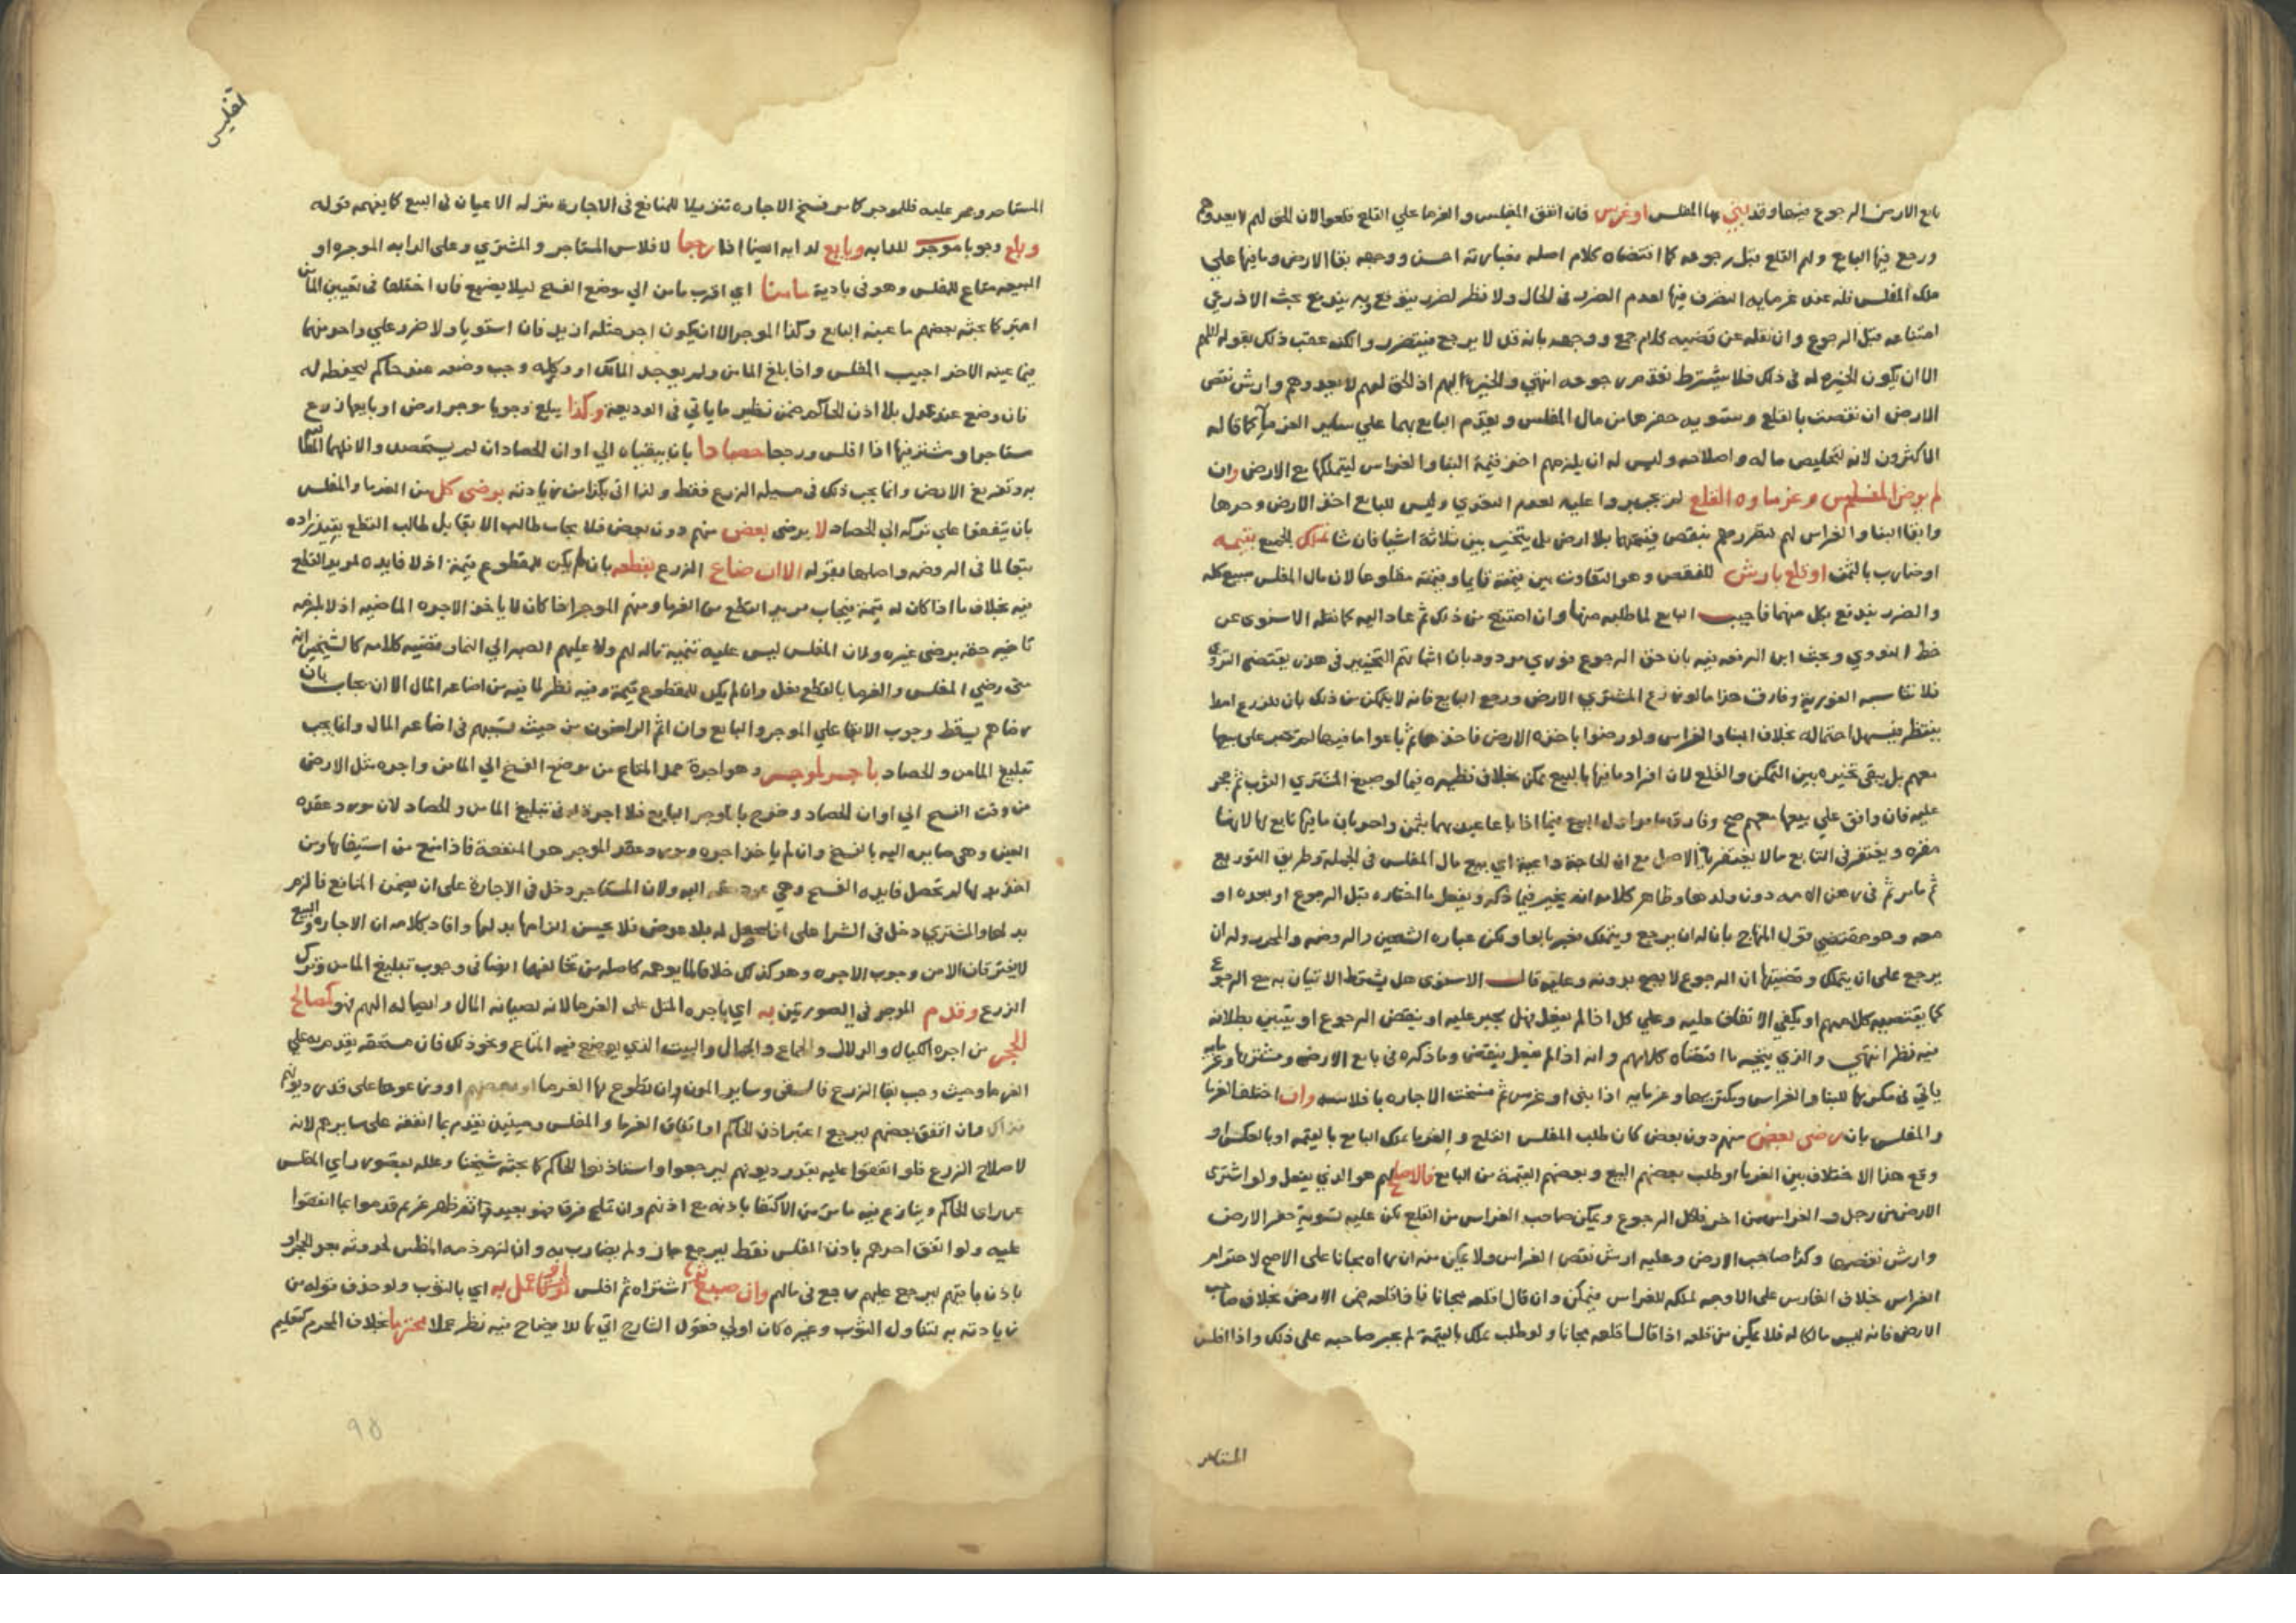 بايع الارض الرجوع فيها وقد بني بها المفلس او غرس فان اتفق المفلس والغرما علي القلع قلعوا لان الحق لهم لا يعدوهم
ورجع فيها البايع ولهم القلع قبل رجوعه كما اقتضاه كلام اصله فعبارته احسن ووجهه بقا الارض وما فيها علي
ملك المفلس فله عند غرمايه التصرف فيها لعدم الضرر في الحال ولا نظر لضرر يتوقع وبه يندفع بحث الاذرعي
امتناعه قبل الرجوع وان نقله عن قضيه كلام جمع ووجهه بانه قد لا يرجع فيتضرر ولكنه عقب ذلك بقوله اللهم
الا ان يكون الخيره له في ذلك فلا يشترط تقدم رجوعه انتهي والخيرة اليهم اذ الحق لهم لا يعدوهم وارش نقص
الارض ان نقصت بالقلع وتسويه حفرها من مال المفلس ويقدم البايع بهما علي ساير الغرما كما قاله
الاكثرون لانه لتخليص ماله واصلاحه وليس له ان يلزمهم اخذ قيمة البنا والغراس ليتملكها مع الارض وان
لم يرض المفلس وغرماوه القلع لم يجبروا عليه لعدم التعدي وليس للبايع اخذ الارض وحدها
وابقا البنا والغراس لهم لتضررهم بنقص قيمتهما بلا ارض بل يتخير بين ثلاثة اشيا فان شا تملك الجميع بقيمه
او ضارب بالثمن او قلع بارش للنقص وهو التفاوت بين قيمته قايما وقيمته مقلوعا لان مال المفلس مبيع كله
والضرر يندفع بكل منهما فاجيب البايع لما طلبه منها وان امتنع من ذلك ثم عاد اليه كما نقله الاسنوي عن
خط النووي وبحث ابن الرفعه فيه بان حق الرجوع فوري مردود بان اثباتهم التخيير في هذه يقتضي التروي
فلا تناسبه الفورية وفارق هذا ما لو زرع المشتري الارض ورجع البايع فانه لا يتمكن من ذلك بان للزرع امدا
ينتظر فيسهل احتماله بخلاف البنا والغراس ولو رضوا باخذه الارض فاخذها ثم باعوا ما فيها لم يجبر على بيعها
معهم بل يبقى تخيره بين التملك والقلع لان افراد ما فيها بالبيع ممكن بخلاف نظيره فيما لو صبغ المشتري الثوب ثم حجر
عليه فان وافق علي بيعها معهم صح وفارق ما مر اول البيع فيما اذا باعا عبديهما بثمن واحد بان ما فيها تابع لها لا يضا
مفرده ويغتفر في التابع ما لا يغتفر في الاصل مع ان الحاجة داعية اي بيع مال المفلس في الجملة وطريق التوزيع
ثم ما مر ثم في رهن الامه دون ولدها وظاهر كلامه انه يخير فيما ذكره ويفعل ما اختاره قبل الرجوع او بعده او
معه وهو مقتضي قول المنهاج بان له ان يرجع ويتملك لكن عباره الشيخين والروضه والمحرر وله ان
يرجع على ان يتملك وقضيتها ان الرجوع لا يصح بدونه وعليه قال الاسنوي هل يشترط الاتيان به مع الرجوع
كما يقتضيه كلامهم او يكفي الاتفاق عليه وعلي كل اذا لم يفعل فهل يجبر عليه او ينقض الرجوع او يتبين بطلانه
فيه نظر انتهي والذي يتجه ما اقتضاه كلامهم وانه اذا لم يفعل ينقض وما ذكره في بايع الارض ومشتريها وغرمايه
ياتي في مكريها للبنا والغراس ومكتريها وغرمايه اذا بنى او غرس ثم فسخت الاجاره بافلاسه وان اختلف الغرما
والمفلس بان رضي بعض منهم دون بعض كان طلب المفلس القلع والغرما تملك البايع بالقيمه او بالعكس او
وقع هذا الاختلاف بين الغرما او طلب بعضهم البيع وبعضهم القيمة من البايع فالاصلح لهم هو الذي يفعل ولو اشترى
الارض من رجل والغراس من اخر فلكل الرجوع ويمكن صاحب الغراس من القلع لكن عليه تسوية حفر الارض
وارش نقصها وكذا صاحب الارض وعليه ارش نقص الغراس ولا يمكن منه ان اراه مجانا على الاصح لاحترام
الغراس بخلاف الغارس على الاوجه لملكه للغراس فيمكن وان قال اقلعه مجانا فاقلعه بخلاف صاحب
الارض فانه ليس مالكا له فلا يمكن من قلعه اذا قال اقلعه مجانا ولو طلب تملك بالقيمة لم يجبر صاحبه على ذلك واذا افلس
المستاجر
تفليس
المستاجر وحجر عليه فللموجر كما مر فسخ الاجاره تنزيلا للمنافع في الاجارة منزله الاعيان في البيع كما يفهمه قوله
وبلغ وجوبا موجر للدابه وبايع لدابه ايضا اذا رجعا لافلاس المستاجر والمشتري وعلى الدابه الموجره او
المبيعه متاع للمفلس وهو في بادية مامنا اي اقرب مامن الي موضع الفسخ ليلا يضيع فان اختلفا في تعيين المامن
اعتبر كما بحثه بعضهم ما عينه البايع وكذا الموجر الا ان يكون اجر مثله ازيد فان استويا ولا ضرر علي واحد منهما
فيما عينه الاخر اجيب المفلس واذا بلغ المامن ولم يوجد المالك او وكيله وجب وضعه عند حاكم ليحفظه له
فان وضع عند عدل بلا اذن الحاكم ضمن نظير ما ياتي في الوديعة وكذا يبلغ وجوبا موجر ارض او بايعها زرع
مستاجر او مشتريها اذا افلس ورجعا حصادا بان يبقياه الي اوان الحصاد ان لم يستحصد والا فلهما المطالبه
به وتفريغ الارض وانما يجب ذلك في مسيله الزرع فقط ولذا اتى بكذا من زيادته برضى كل من الغرما والمفلس
بان يتفقوا علي تركه الي الحصاد لا برضى بعض منهم دون بعض فلا يجاب طالب الابقا بل طالب القطع بقيد زاده
تبعا لما في الروضه واصلها بقوله الا ان ضاع الزرع بقطعه بان لم يكن للمقطوع قيمة اذ لا فايده لمريد القلع
فيه بخلاف ما اذا كان له قيمة فيجاب مريد القطع من الغرما ومنهم الموجر اذا كان لا ياخذ الاجره الماضيه اذ لا يلزمه
تاخير حقه برضى غيره ولان المفلس ليس عليه تنمية ماله لهم ولا عليهم الصبر الي النما وقضيه كلامه كالشيخين انه
متى رضي المفلس والغرما بالقطع فعل وان لم يكن للمقطوع قيمة وفيه نظر لما فيه من اضاعه المال الا ان يجاب بان
رضاهم يسقط وجوب الابقا علي الموجر والبايع وان اثم الراضون من حيث تسببهم في اضاعه المال وانما يجب
تبليغ المامن والحصاد باجر لموجر وهو اجرة حمل المتاع من موضع الفسخ الي المامن واجره مثل الارض
من وقت الفسخ الي اوان الحصاد وخرج بالموجر البايع فلا اجرة له في تبليغ المامن والحصاد لان مورد عقده
العين وهي صايره اليه بالفسخ وان لم ياخذ اجره ومورد عقد الموجر هو المنفعة فاذا منع من استيفايها ومن
اخذ بدلها لم تحصل فايده الفسخ وهي عود حقه اليه ولان المستاجر دخل في الاجارة على ان يضمن المنافع فالزم
بدلها والمشتري دخل في الشرا على ان تحصل له بلا عوض فلا يحسن الزامها بدلها وافاد بكلامه ان الاجاره والبيع
لا يفترقان الا من وجوب الاجره وهو كذلك خلافا لما يوهمه كاصله من تخالفهما ايضا في وجوب تبليغ المامن وترك
الزرع وقدم الموجر في الصورتين به اي باجره المثل على الغرما لانه لصيانه المال وايصاله اليهم فهو كمصالح
الحجر من اجره الكيال والدلال والحمال والبيت الذي يوضع فيه المتاع ونحو ذلك فان مستحقه يقدم به علي
الغرما وحيث وجب بقا الزرع فالسقي وساير المون ان تطوع بها الغرما او بعضهم او وزعوها على قدر ديونهم
فذاك وان انفق بعضهم ليرجع اعتبر اذن الحاكم او اتفاق الغرما والمفلس وحينيذ يقدم بما انفقه على سايرهم لانه
لاصلاح الزرع فلو انفقوا عليه بقدر ديونهم ليرجعوا واستاذنوا الحاكم كما بحثه شيخنا وعلله بقصور راي المفلس
عن راي الحاكم وينازع فيه ما مر من الاكتفا باذنه مع اذنهم وان تلمح فرق فهو بعيد ثم ظهر غريم قدموا بما انفقوا
عليه ولو انفق احدهم باذن المفلس فقط ليرجع جاز ولم يضارب به وان لزم ذمه المفلس لحدوثه بعد الحجر او
باذن باقيهم ليرجع عليهم رجع في مالهم وان صبغ ثوبا اشتراه ثم افلس او عمل به اي بالثوب ولو حذف قوله من
زيادته به لتناول الثوب وغيره كان اولي فقول الشارح اتي بها للايضاح فيه نظر عملا محترما بخلاف المحرم كتعليم
٩٥